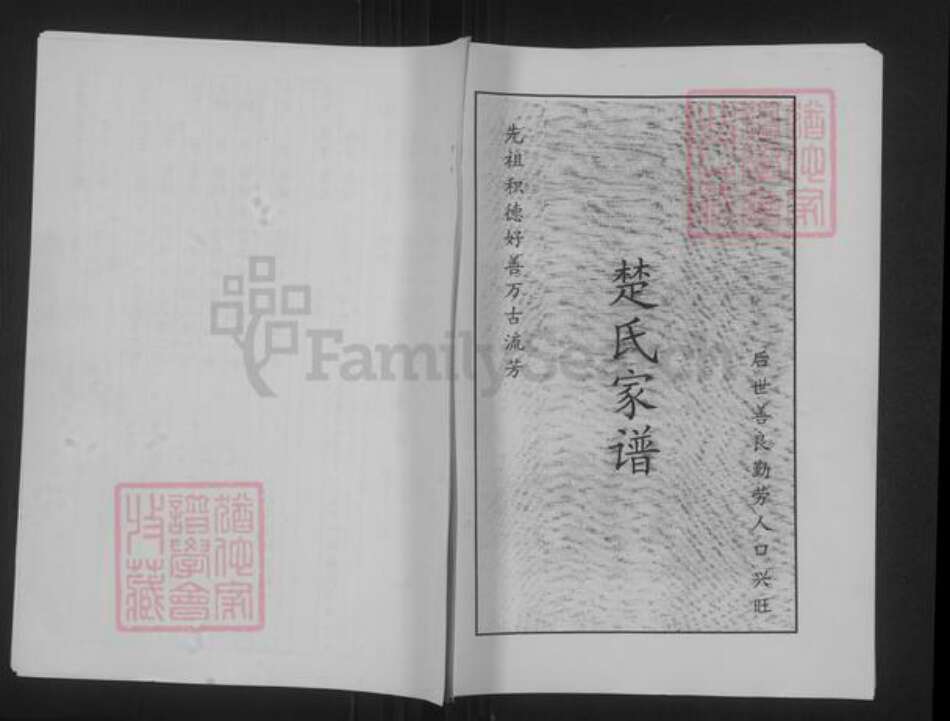 先祖积德好善万古流芳
楚氏家谱
后世善良勤劳人口兴旺
FamilySearch
猶他家
譜學會
收藏
猶他家
譜學會
收藏